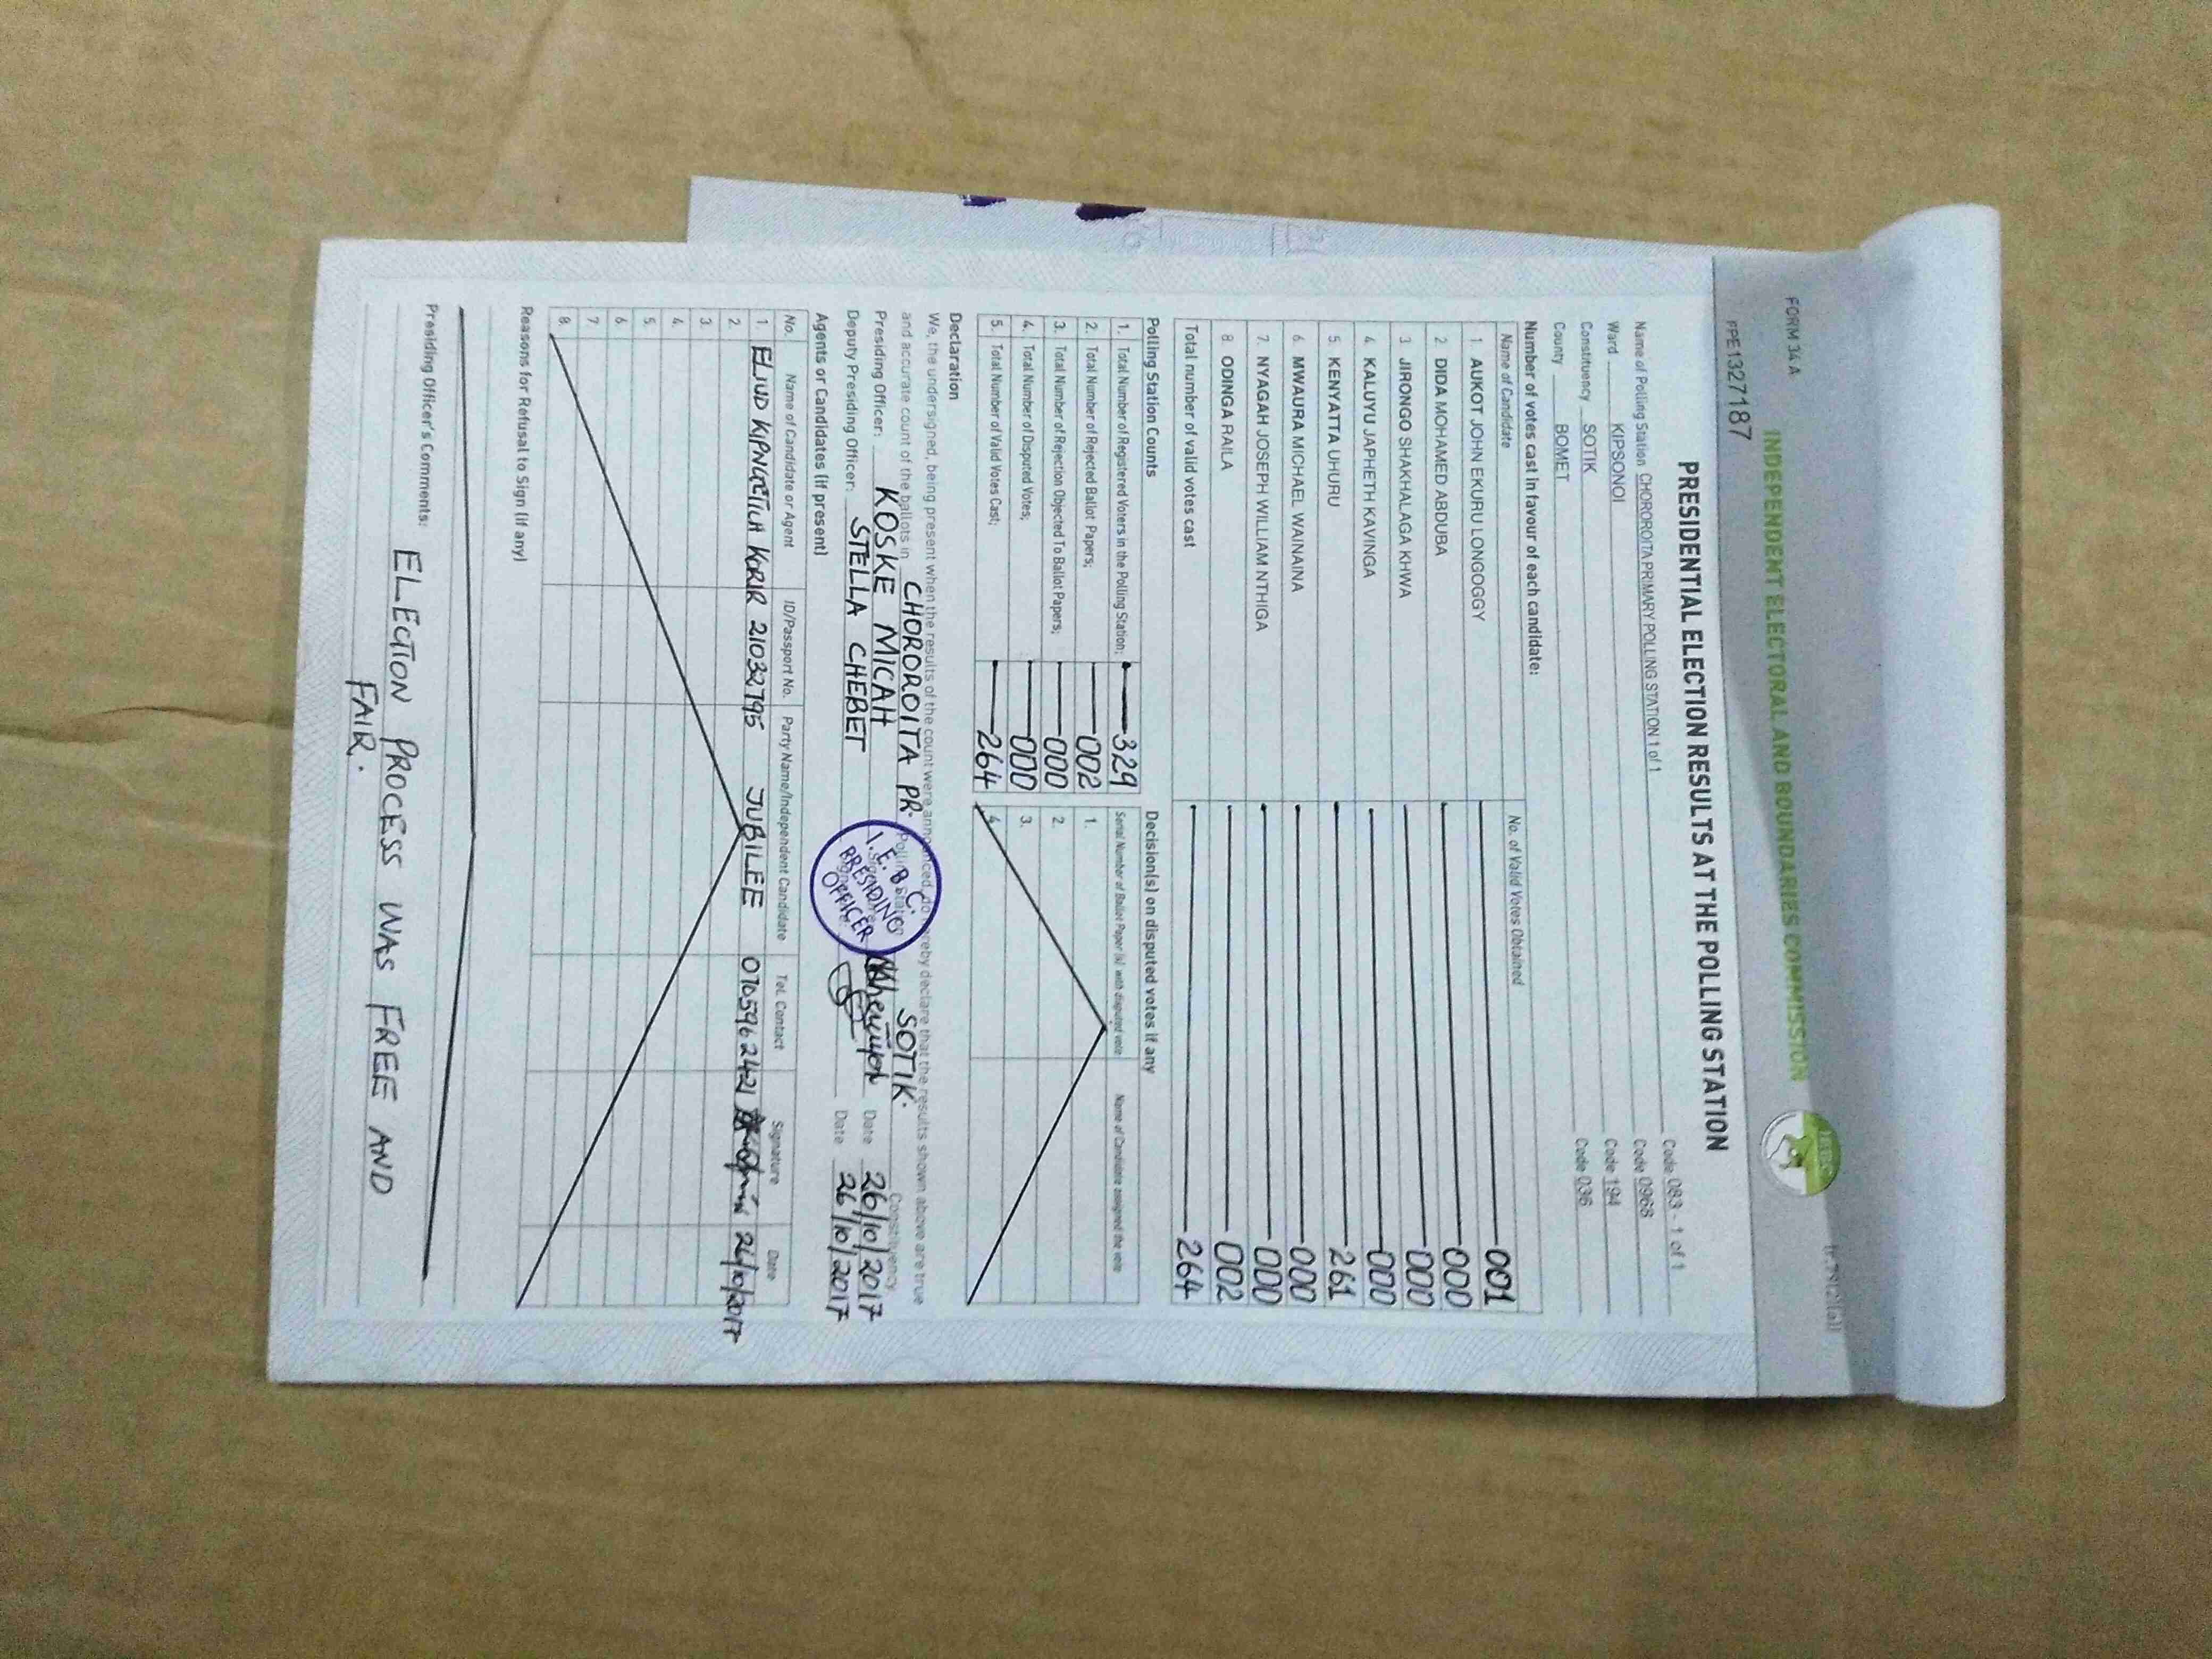 FORM 34 A
INDEPENDENT ELECTORAL AND BOUNDARIES COMMISSION
PPE1327187
PRESIDENTIAL ELECTION RESULTS AT THE POLLING STATION
Name of Polling Station CHOROROITA PRIMARY POLLING STATION 1 of 1 Code 083 - 1 of 1
Ward KIPSONOI Code 0968
Constituency SOTIK Code 194
County BOMET Code 036
Number of votes cast in favour of each candidate:
Name of Candidate No. of Valid Votes Obtained
1 AUKOT JOHN EKURU LONGOGGY 001
2 DIDA MOHAMED ABDUBA 000
3 JIRONGO SHAKHALAGA KHWA 000
4 KALUYU JAPHETH KAVINGA 000
5 KENYATTA UHURU 261
6 MWAURA MICHAEL WAINAINA 000
7 NYAGAH JOSEPH WILLIAM NTHIGA 000
8 ODINGA RAILA 002
Total number of valid votes cast 264
Polling Station Counts
1. Total Number of Registered Voters in the Polling Station: 329
2. Total Number of Rejected Ballot Papers; 002
3. Total Number of Rejection Objected To Ballot Papers; 000
4. Total Number of Disputed Votes; 000
5. Total Number of Valid Votes Cast; 264
Decision(s) on disputed votes if any
Serial Number of Ballot Paper (s) with disputed vote Name of Candidate assigned the vote
1.
2.
3.
4.
Declaration
We, the undersigned, being present when the results of the count were announced, do hereby declare that the results shown above are true
and accurate count of the ballots in CHOROROITA PR. Polling Station SOTIK. Constituency
Presiding Officer: KOSKE MICAH Date 26/10/2017
Deputy Presiding Officer: STELLA CHEBET Date 26/10/2017
I.E.B.C.
PRESIDING
OFFICER
Agents or Candidates (if present)
No. Name of Candidate or Agent ID/Passport No. Party Name/Independent Candidate Tel. Contact Signature Date
1 ELIUD KIPNGETICH KORIR 21032795 JUBILEE 0705962421 26/10/2017
2.
3.
4.
5.
6.
7.
8.
Reasons for Refusal to Sign (if any)
Presiding Officer's Comments:
ELECTION PROCESS WAS FREE AND
FAIR.